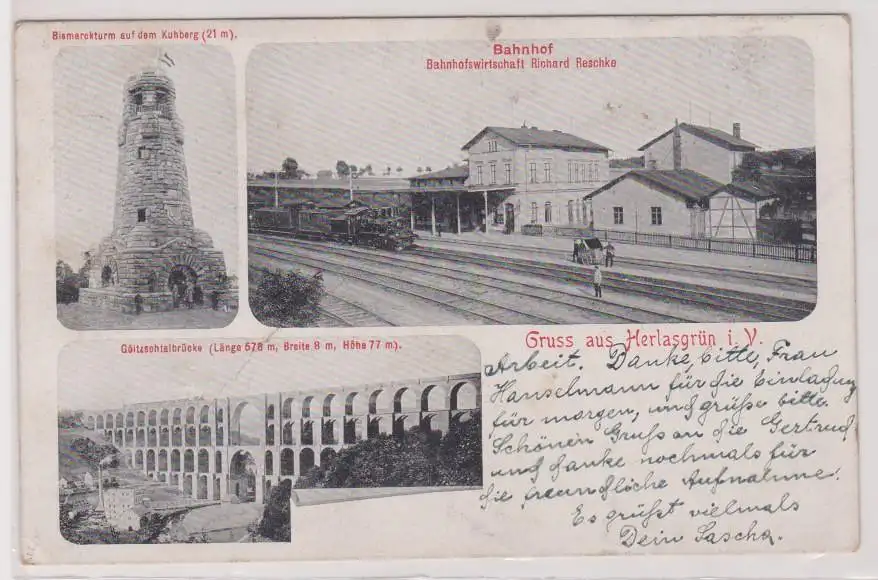 Bismarckturm auf dem Kuhberg (21 m).
Bahnhof
Bahnhofswirtschaft Richard Reschke
Göltzschtalbrücke (Länge 578 m, Breite 8 m, Höhe 77 m).
Gruss aus Herlasgrün i. V.
Arbeit. Danke, bitte, Frau
Hanselmann für die Einladung
für morgen, und grüße bitte.
Schönen Gruß an die Gertrud
und danke nochmals für
die freundliche Aufnahme.
Es grüßt vielmals
Dein Sascha.